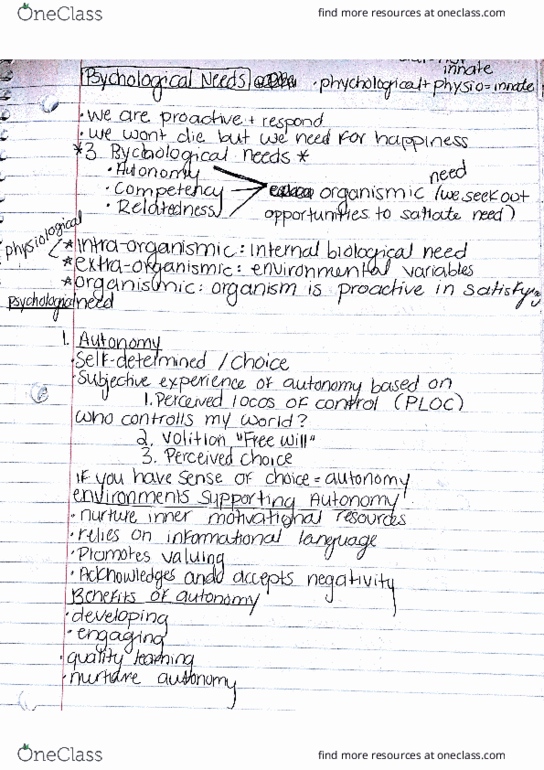 OneClass find more resources at oneclass.com
innate
Psychological Needs · phychological + physio = innate
· we are proactive + respond
· we wont die but we need for happiness
*3 Bychological needs *
· Autonomy need
· Competency organismic (we seek out
· Relatedness opportunities to satiate need)
physiological
*intra-organismic: internal biological need
*extra-organismic: environmental variables
*organismic: organism is proactive in satisfying
psychological need
1. Autonomy
· Self-determined / Choice
· Subjective experience of autonomy based on
1. Perceived locos of control (PLOC)
who controlls my world?
2. Volition "Free will"
3. Perceived choice
if you have sense of choice = autonomy
environments supporting Autonomy
· nurture inner motivational resources
· relies on informational language
· Promotes valuing
· Acknowledges and accepts negativity
Benefits of autonomy
· developing
· engaging
· quality learning
· nurture autonomy
OneClass find more resources at oneclass.com